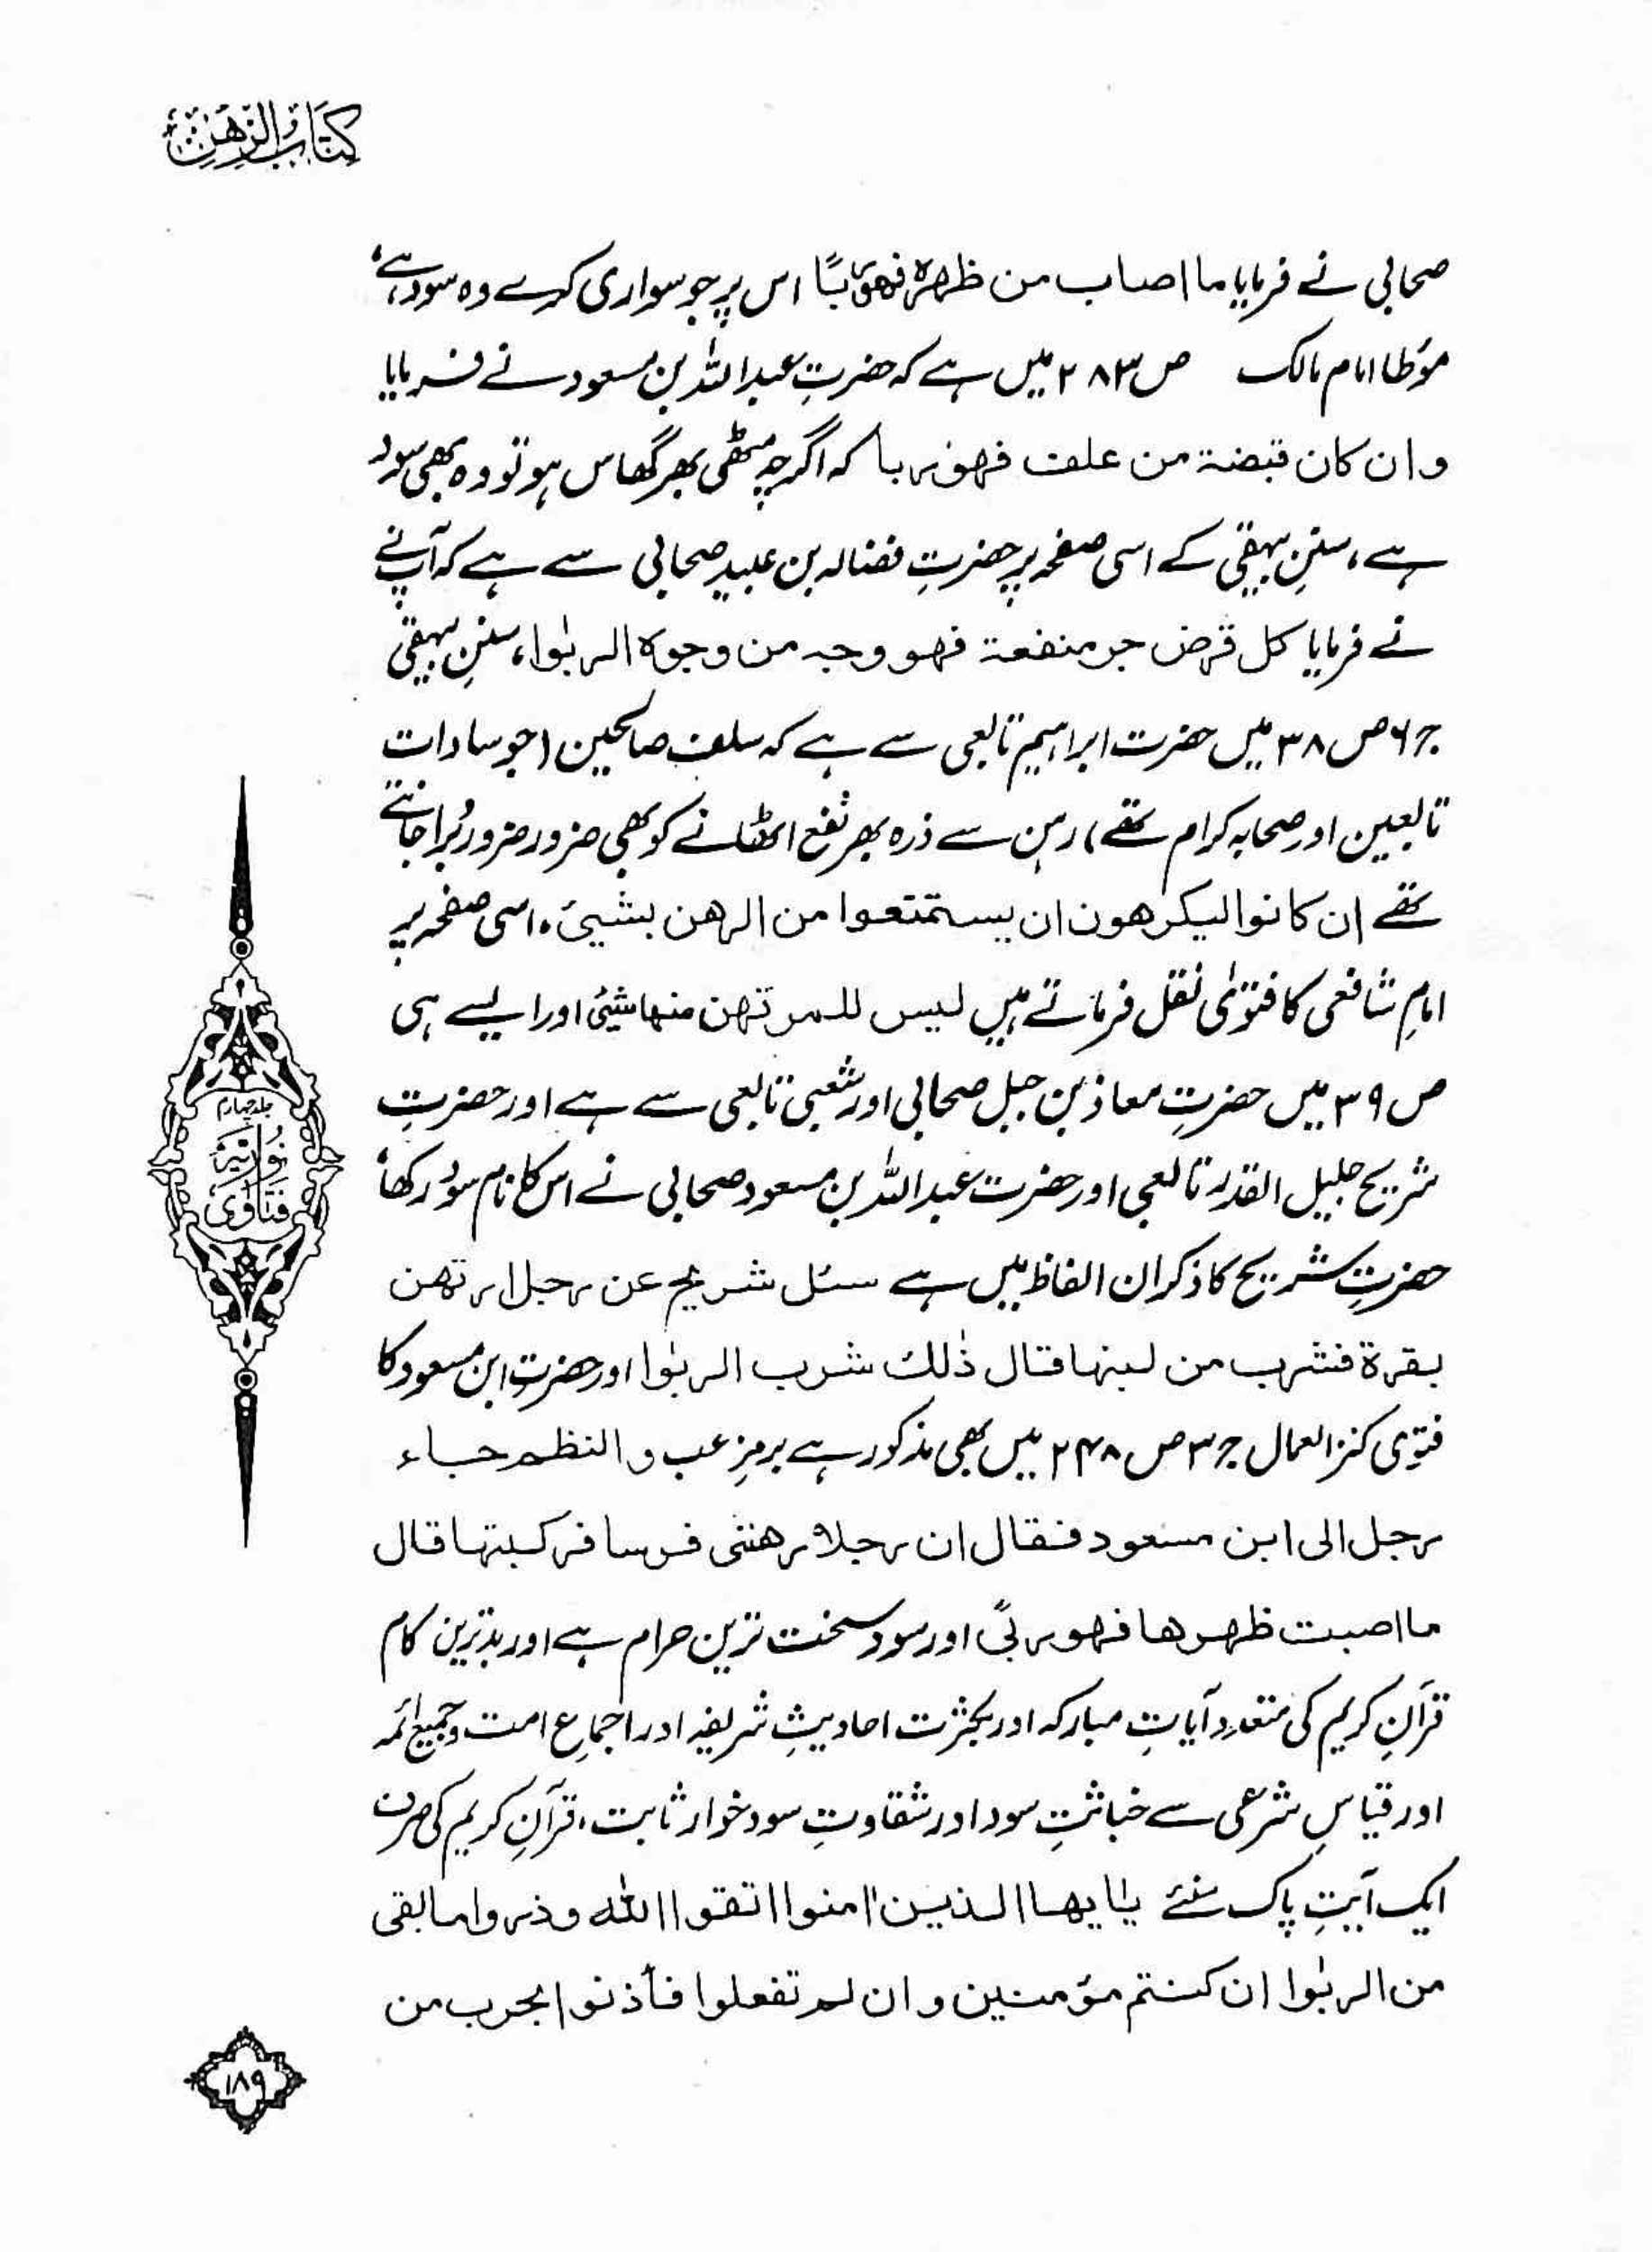 کتاب الرھن
صحابی نے فرمایا ما اصاب من ظهره فهو ربًا اس پر جو سواری کرے وہ سود ہے،
مؤطا امام مالک ص ۲۸۳ میں ہے کہ حضرتِ عبداللہ بن مسعود نے فرمایا
و ان كان قبضة من علف فهو ربا کہ اگرچہ مٹھی بھر گھاس ہو تو وہ بھی سود
ہے، سننِ بیہقی کے اسی صفحہ پر حضرتِ فضالہ بن عبید صحابی سے ہے کہ آپ نے
نے فرمایا كل قرض جر منفعة فهو وجه من وجوه الربٰوا، سننِ بیہقی
ج ۶ ص ۳۸ میں حضرت ابراہیم تابعی سے ہے کہ سلف صالحین (جو سادات
تابعین اور صحابہ کرام تھے) رہن سے ذرہ بھر نفع اٹھانے کو بھی ضرور ضرور بُرا جانتے
تھے ان كانوا ليكرهون ان يستمتعوا من الرهن بشيئ، اسی صفحہ پر
امامِ شافعی کا فتوٰی نقل فرماتے ہیں ليس للمرتهن منها شيئ اور ایسے ہی
ص ۳۹ میں حضرتِ معاذ بن جبل صحابی اور شعبی تابعی سے ہے اور حضرتِ
شریح جلیل القدر تابعی اور حضرت عبداللہ بن مسعود صحابی نے اس کا نام سود رکھا،
حضرتِ شریح کا ذکر ان الفاظ میں ہے سئل شريح عن رجل ارتهن
بقرة فشرب من لبنها قال ذٰلك شرب الربٰوا اور حضرتِ ابن مسعود کا
فتوی کنز العمال ج ۳ ص ۲۴۸ میں بھی مذکور ہے برمزِ عب و النظم جاء
رجل الى ابن مسعود فقال ان رجلا رهننى فرسا فركبتها قال
ما اصبت ظهرها فهو ربًى اور سود سخت ترین حرام ہے اور بدترین کام
قرآنِ کریم کی متعدد آیاتِ مبارکہ اور بکثرت احادیثِ شریفہ اور اجماعِ امت و جمیع ائمہ
اور قیاسِ شرعی سے خباثتِ سود اور شقاوتِ سود خوار ثابت، قرآنِ کریم کی صرف
ایک آیتِ پاک سنئے يٰايها الذين اٰمنوا اتقوا الله وذروا ما بقى
من الربٰوا ان كنتم مؤمنين و ان لم تفعلوا فأذنوا بحرب من
جلد چہارم
نُورِیَّہ
فَتَاوٰی
۱۸۹